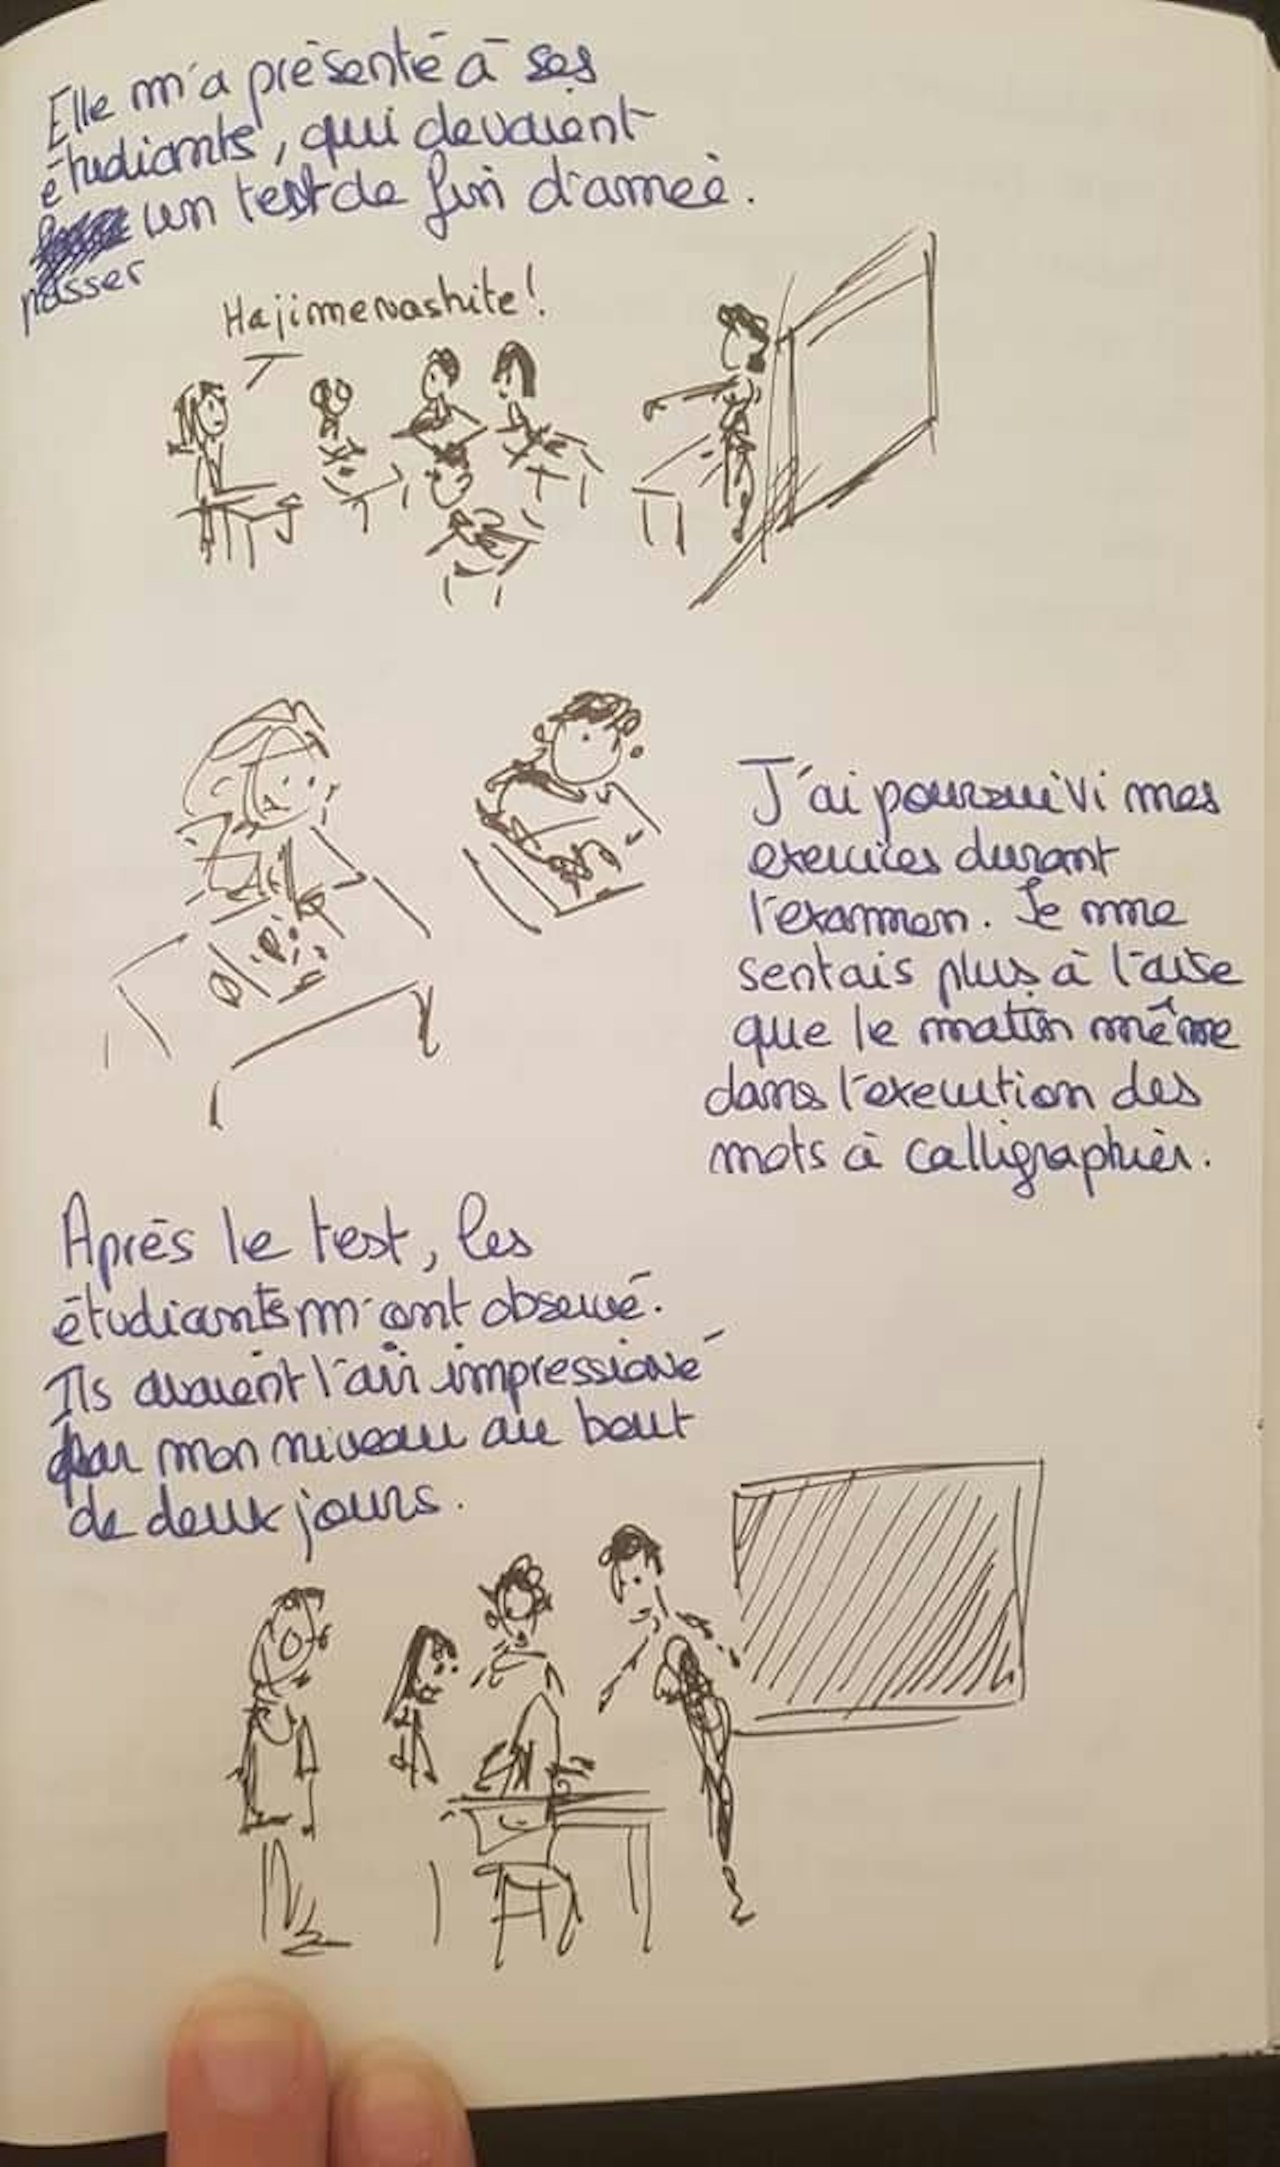 Elle m'a présenté à ses
étudiants, qui devaient
un test de fin d'année.
passer
Hajimemashite!
J'ai poursuivi mes
exercices durant
l'examen. Je me
sentais plus à l'aise
que le matin même
dans l'execution des
mots à calligraphier.
Après le test, les
étudiants m'ont observé.
Ils avaient l'air impressioné
par mon niveau au bout
de deux jours.